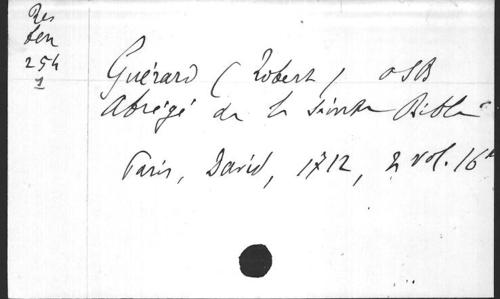 Res
ben
254
1
Guérard (Robert) OSB
Abrégé de la Sainte Bible
Paris, David, 1712, 2 vol. 16°